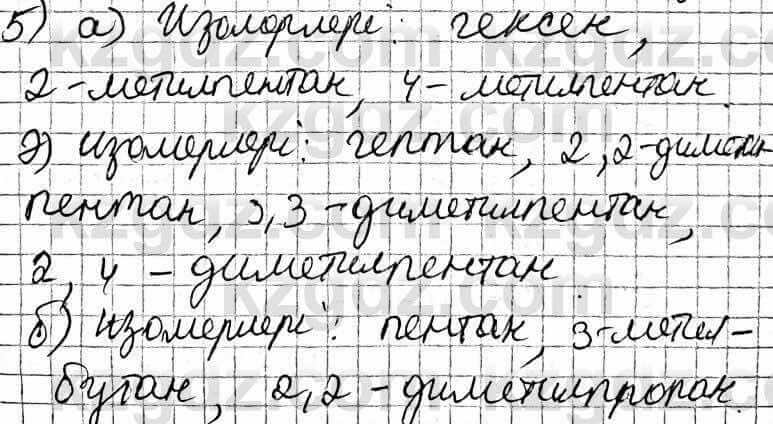 5) а) Изомерлері: гексен,
2-метилпентан, 4-метилпентан
ә) изомерлері: гептан, 2,2-диметил
пентан, 3,3-диметилпентан,
2,4-диметилпентан
б) изомерлері: пентан, 3-метил-
бутан, 2,2-диметилпропан.